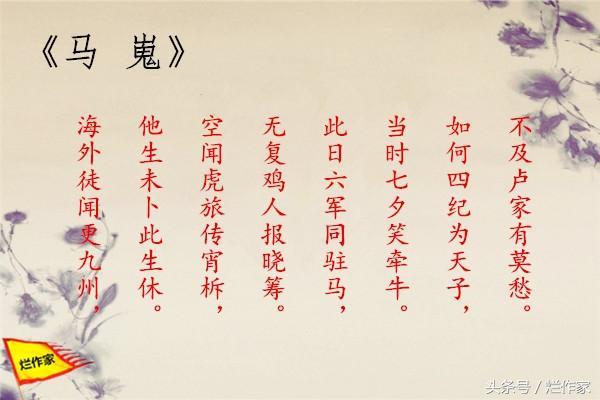 《马 嵬》
海外徒闻更九州，
他生未卜此生休。
空闻虎旅传宵柝，
无复鸡人报晓筹。
此日六军同驻马，
当时七夕笑牵牛。
如何四纪为天子，
不及卢家有莫愁。
烂作家
头条号 / 烂作家